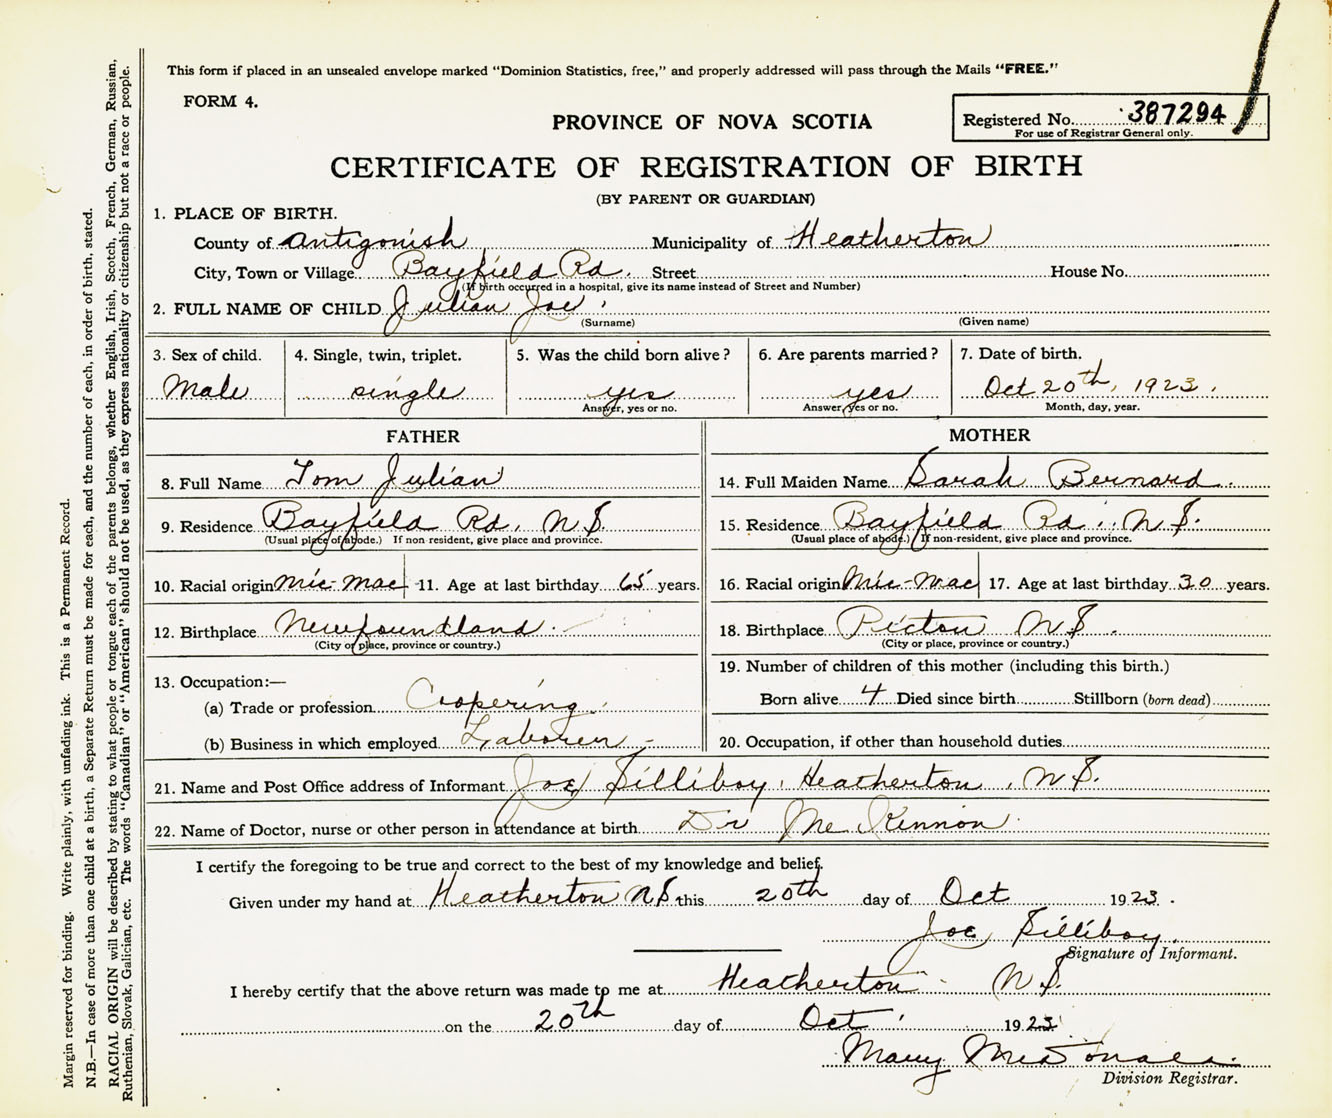 This form if placed in an unsealed envelope marked "Dominion Statistics, free," and properly addressed will pass through the Mails "FREE."
FORM 4.
Registered No. 387294
For use of Registrar General only.
PROVINCE OF NOVA SCOTIA
CERTIFICATE OF REGISTRATION OF BIRTH
(BY PARENT OR GUARDIAN)
1. PLACE OF BIRTH.
County of Antigonish Municipality of Heatherton
City, Town or Village Bayfield Rd. Street House No.
(If birth occurred in a hospital, give its name instead of Street and Number)
2. FULL NAME OF CHILD Julian Joe
(Surname) (Given name)
3. Sex of child. 4. Single, twin, triplet. 5. Was the child born alive? 6. Are parents married? 7. Date of birth.
Male single yes yes Oct 20th, 1923.
Answer, yes or no. Answer, yes or no. Month, day, year.
FATHER MOTHER
8. Full Name Tom Julian 14. Full Maiden Name Sarah Bernard
9. Residence Bayfield Rd. N S. 15. Residence Bayfield Rd. N S.
(Usual place of abode.) If non-resident, give place and province. (Usual place of abode.) If non-resident, give place and province.
10. Racial origin Mic-Mac 11. Age at last birthday 65 years. 16. Racial origin Mic-Mac 17. Age at last birthday 30 years.
12. Birthplace Newfoundland 18. Birthplace Picton N S.
(City or place, province or country.) (City or place, province or country.)
13. Occupation:— 19. Number of children of this mother (including this birth.)
(a) Trade or profession Coopering Born alive 4 Died since birth Stillborn (born dead)
(b) Business in which employed Laborer 20. Occupation, if other than household duties
21. Name and Post Office address of Informant Joe Silliboy, Heatherton, N S.
22. Name of Doctor, nurse or other person in attendance at birth Dr McKinnon
I certify the foregoing to be true and correct to the best of my knowledge and belief.
Given under my hand at Heatherton N S this 20th day of Oct 1923.
Joe Silliboy
Signature of Informant.
I hereby certify that the above return was made to me at Heatherton N S.
on the 20th day of Oct 1923
Mary McDonald
Division Registrar.
Margin reserved for binding. Write plainly, with unfading ink. This is a Permanent Record.
N.B.—In case of more than one child at a birth, a Separate Return must be made for each, and the number of each, in order of birth, stated.
RACIAL ORIGIN will be described by stating to what people or tongue each of the parents belongs, whether English, Irish, Scotch, French, German, Russian,
Ruthenian, Slovak, Galician, etc. The words "Canadian" or "American" should not be used, as they express nationality or citizenship but not a race or people.